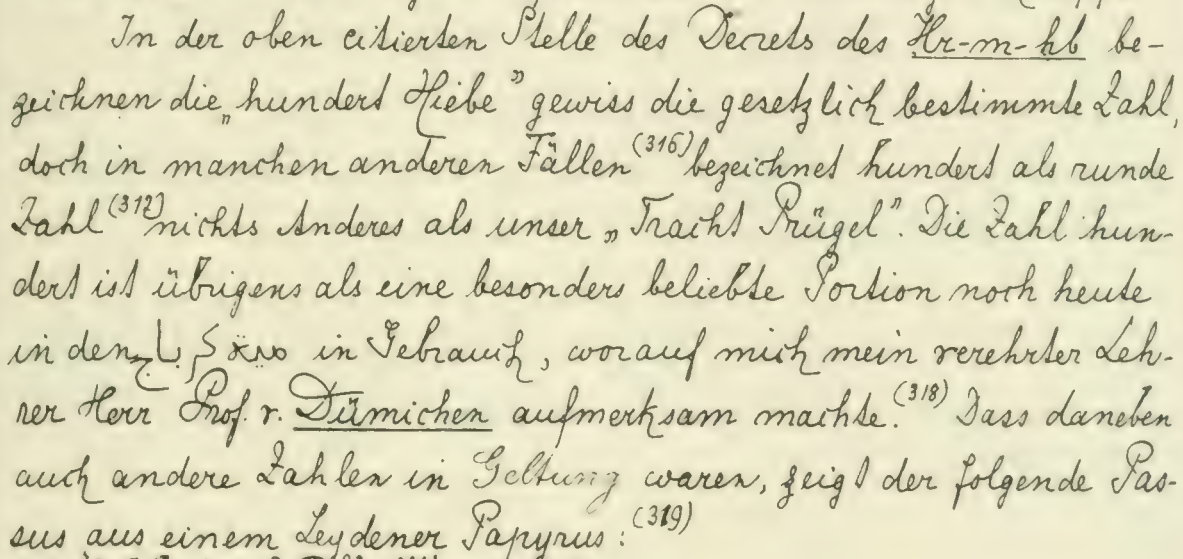 In der oben citierten Stelle des Decrets des Ḥr-m-ḥb be-
zeichnen die „hundert Hiebe” gewiss die gesetzlich bestimmte Zahl,
doch in manchen anderen Fällen (316) bezeichnet hundert als runde
Zahl (317) nichts Anderes als unser „Tracht Prügel”. Die Zahl hun-
dert ist übrigens als eine besonders beliebte Portion noch heute
in den ميّة كرباج in Gebrauch, worauf mich mein verehrter Leh-
rer Herr Prof. r. Dümichen aufmerksam machte. (318) Dass daneben
auch andere Zahlen in Geltung waren, zeigt der folgende Pas-
sus aus einem Leydener Papyrus: (319)